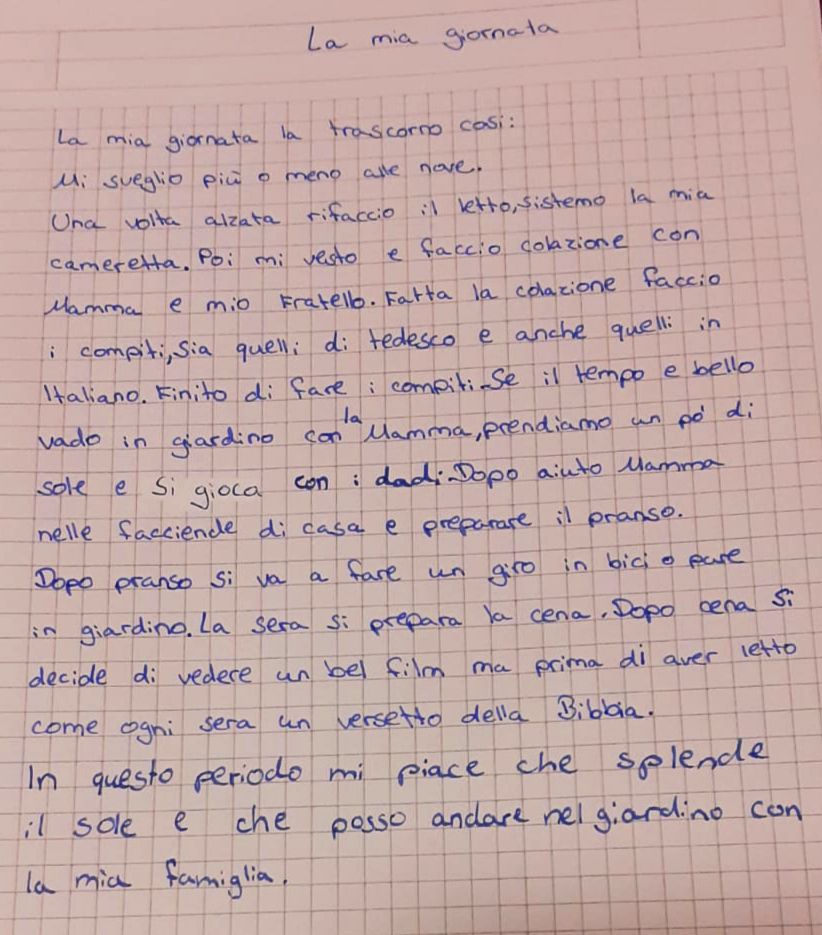 La mia giornata
La mia giornata la trascorro cosi:
Mi sveglio più o meno alle nove.
Una volta alzata rifaccio il letto, sistemo la mia
cameretta. Poi mi vesto e faccio colazione con
Mamma e mio Fratello. Fatta la colazione faccio
i compiti, Sia quelli di tedesco e anche quelli in
Italiano. Finito di fare i compiti. Se il tempo e bello
vado in giardino con la Mamma, prendiamo un pó di
sole e Si gioca con i dadi. Dopo aiuto Mamma
nelle facciende di casa e preparare il pranso.
Dopo pranso Si va a fare un giro in bici o pure
in giardino. La sera Si prepara la cena. Dopo cena Si
decide di vedere un bel film ma prima di aver letto
come ogni sera un versetto della Bibbia.
In questo periodo mi piace che splende
il sole e che posso andare nel giardino con
la mia famiglia.